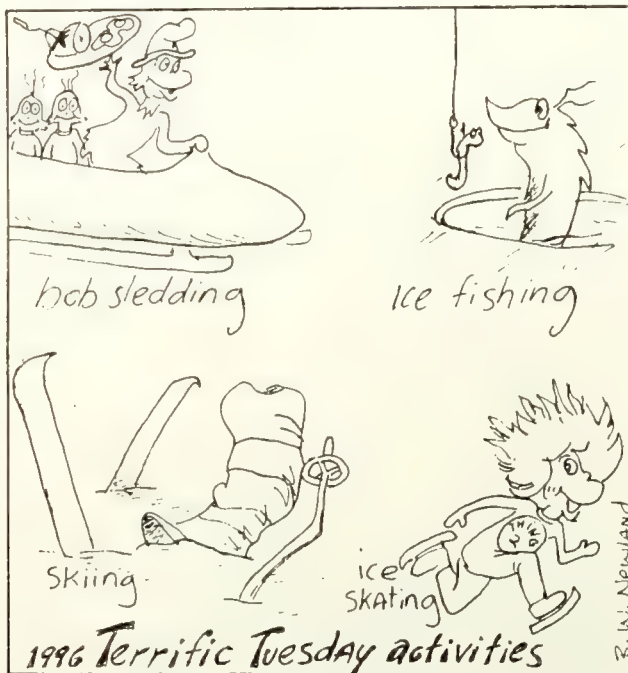 bob sledding
ice fishing
Skiing
ice
SKAting
THING
2
1996 Terrific Tuesday activities
B. W. Newland